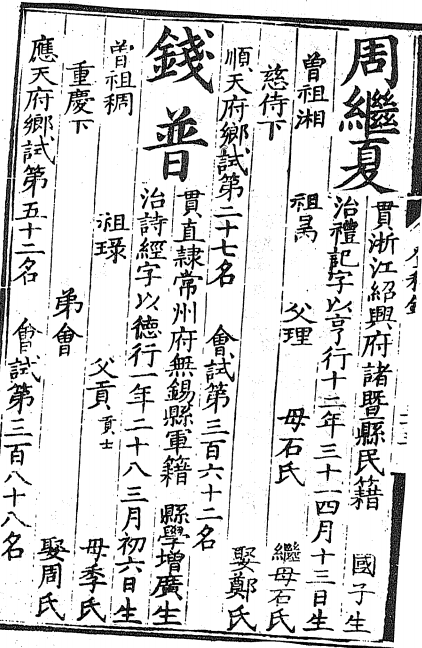 周繼夏
貫浙江紹興府諸暨縣民籍 國子生
治禮記字以亨行十二年三十一四月十三日生
曾祖湘 祖昺 父理 母石氏 繼母石氏
慈侍下 娶鄭氏
順天府鄉試第二十七名 會試第三百六十二名
錢普
貫直隸常州府無錫縣軍籍 縣學增廣生
治詩經字以德行一年二十八三月初六日生
曾祖稠 祖琭 父貢貢士 母季氏
重慶下 弟會 娶周氏
應天府鄉試第五十二名 會試第三百八十八名